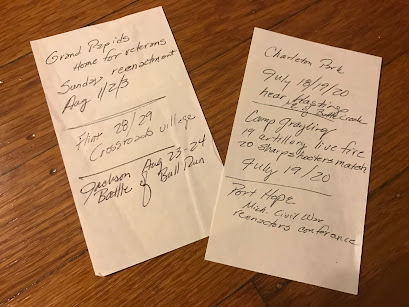 Grand Rapids
Home for veterans
Sunday reenactment
Aug 1/2/3
Flint 28/29
Crossroads village
Jackson Aug 23-24
Battle of Bull Run
Charleton Park
July 18/19/20
near Hastings
N.E. of Battle Creek
Camp Grayling
19 artillery live fire
20 sharpshooters match
July 19/20
Port Hope
Mich. Civil War
reenactors conference